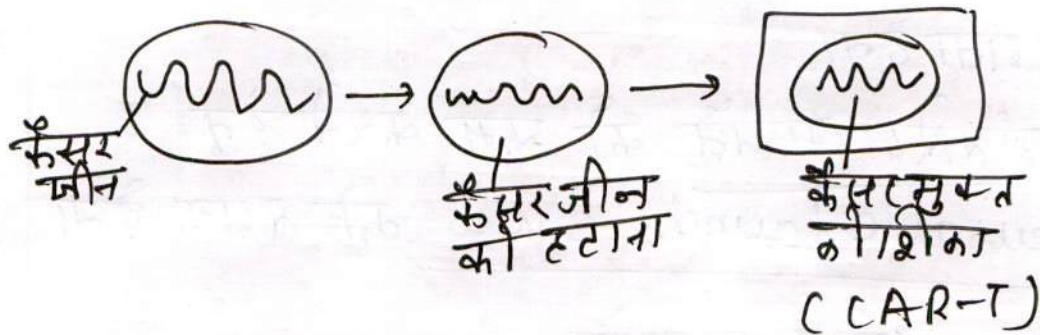 कैंसर
जीन
कैंसर जीन
को हटाना
कैंसर मुक्त
कोशिका
(CAR-T)